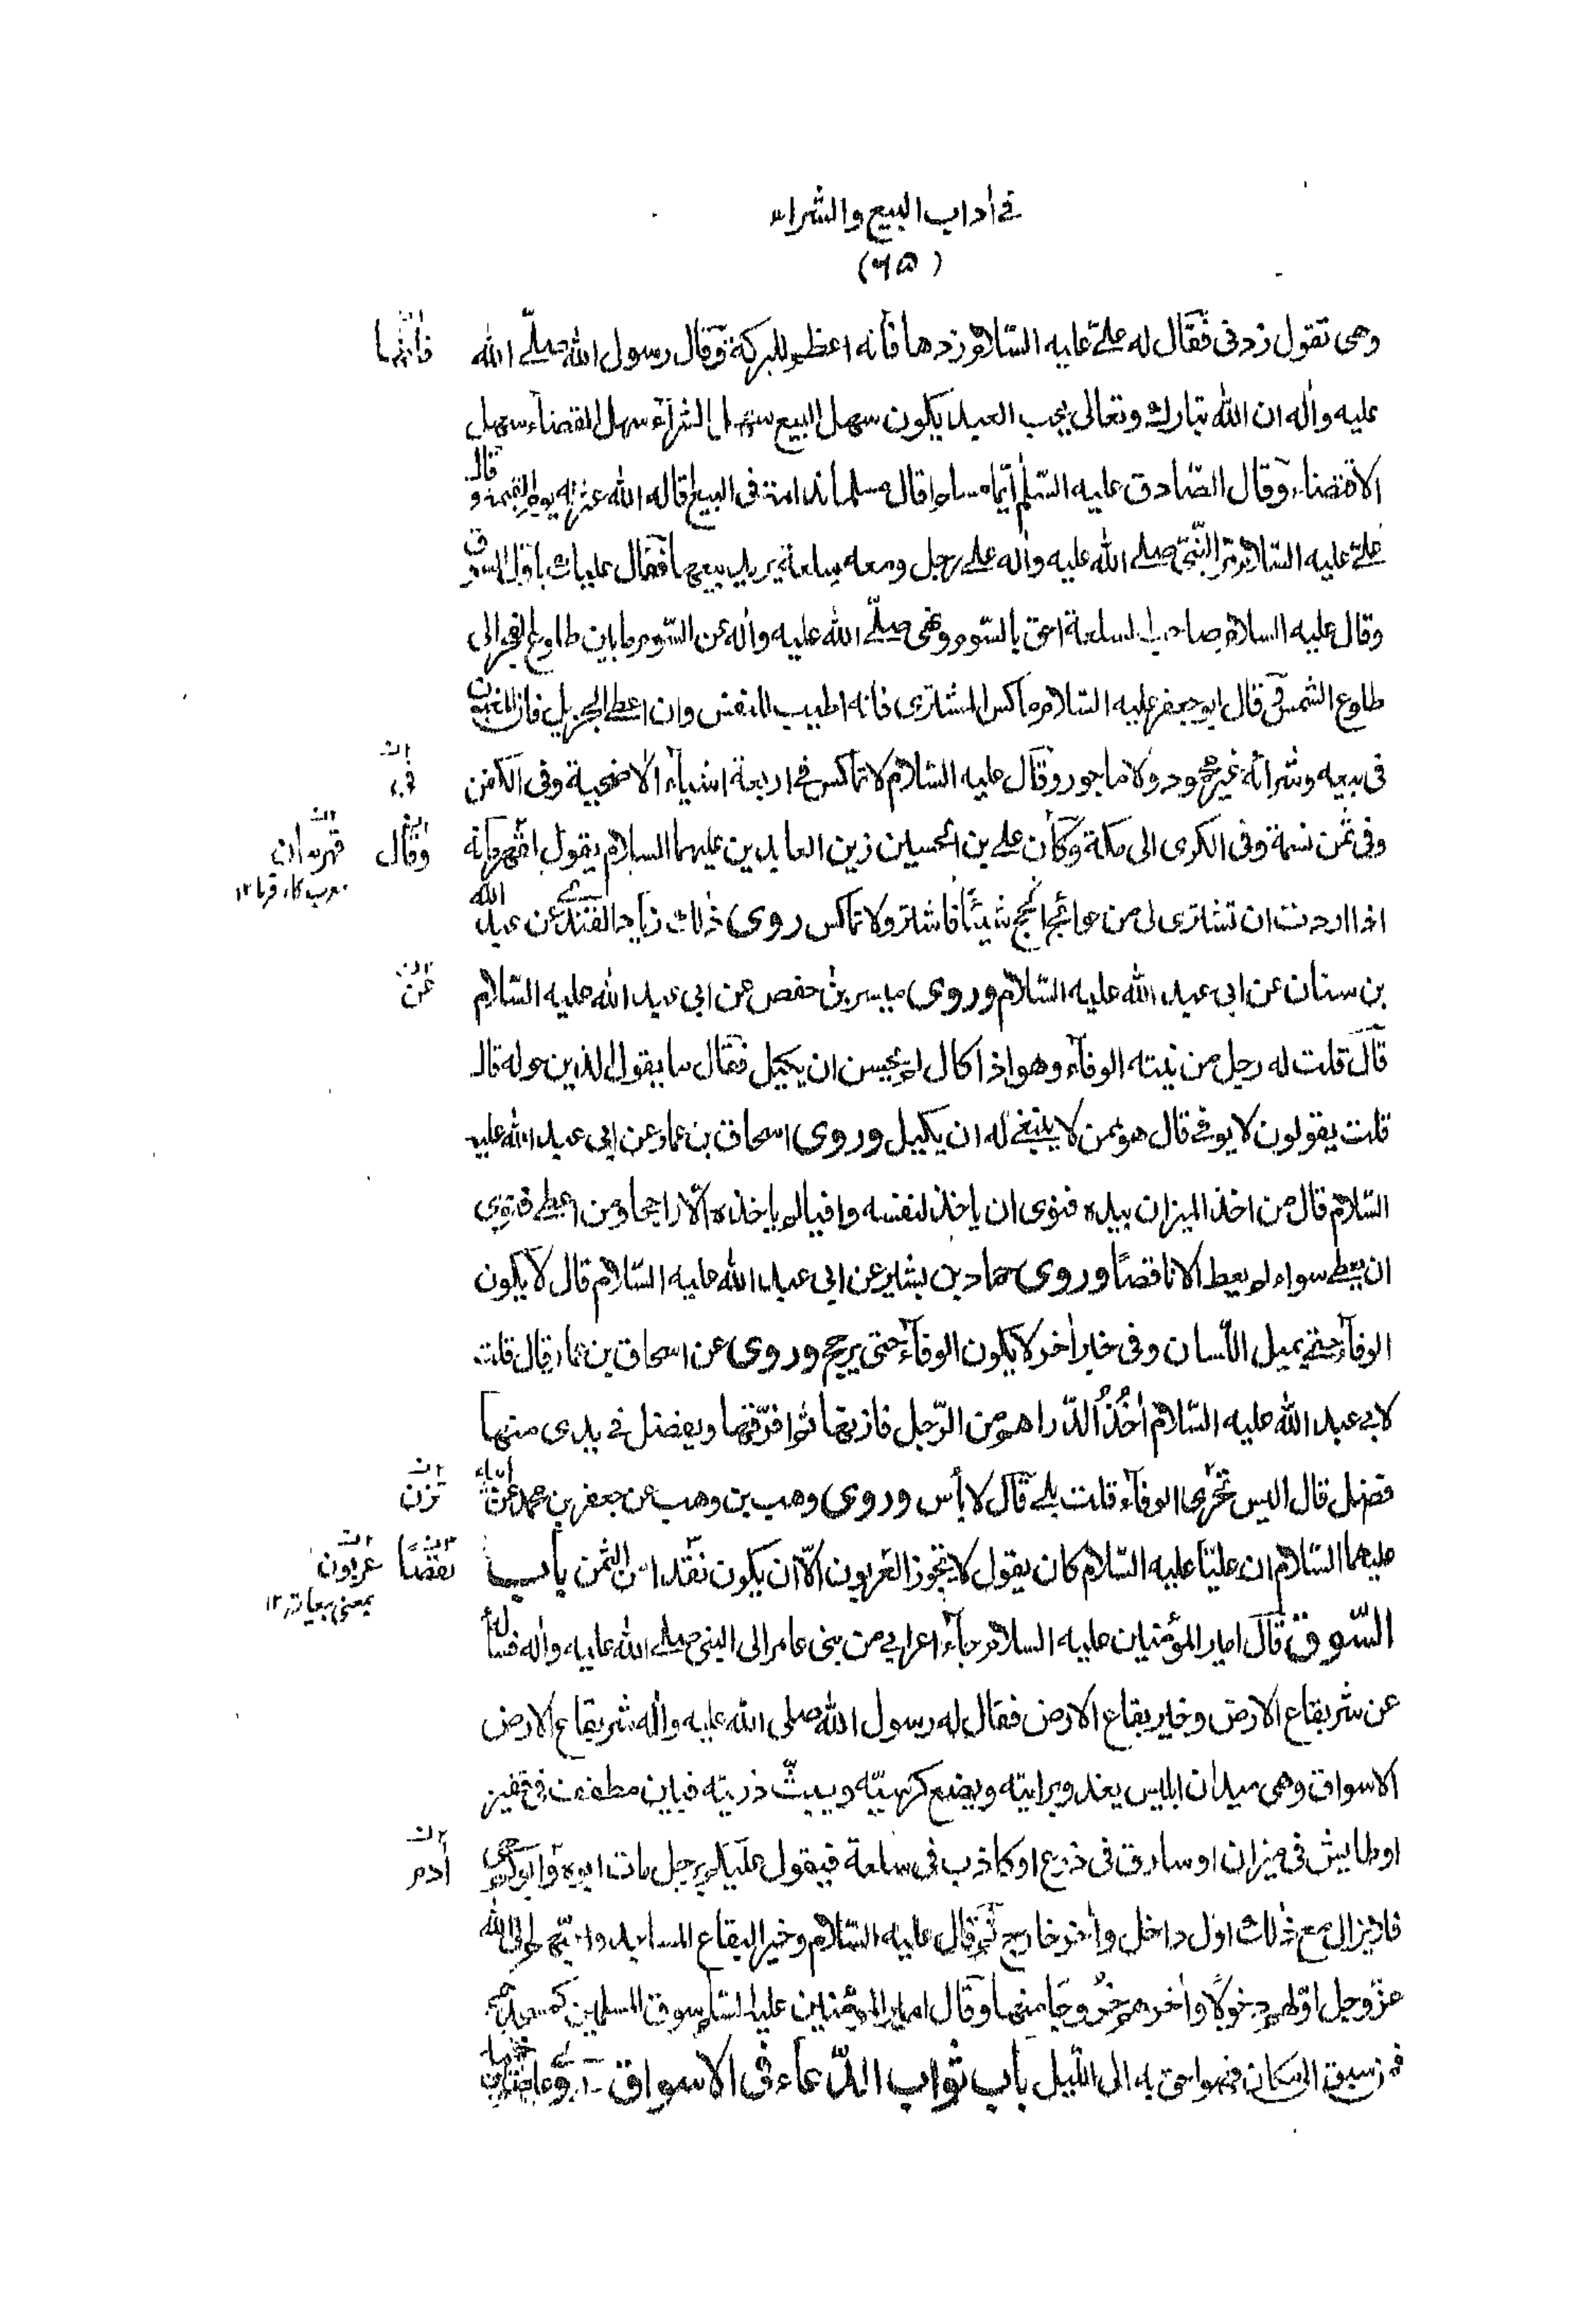 في آداب البيع والشراء
(٦٥)
وهى تقول زدنى فقال له علىّ عليه السّلام زدها فانه اعظم للبركة وقال رسول الله صلّى الله
فانها
عليه واله ان الله تبارك وتعالى يحب العبد يكون سهل البيع سهل الشرآء سهل القضاء سهل
الاقتضاء وقال الصّادق عليه السّلم ايّما مسلم اقال مسلما ندامة فى البيع اقاله الله عثرته يوم القيمة و قال
علىّ عليه السّلام مرّ النّبىّ صلى الله عليه واله على رجل ومعه سلعة يريد بيعها فقال عليك باوّل السوق
وقال عليه السلام صاحب السلعة احق بالسّوم ونهى صلّى الله عليه واله عن السّوم ما بين طلوع الفجر الى
طلوع الشمس وقال ابو جعفر عليه السّلام ماكس المشترى فانه اطيب للنفس وان اعطى الجزيل فان المغبون
فى بيعه وشرائه غير محمود ولا ماجور وقال عليه السّلام لا تماكس فى اربعة اشيآء الاضحية وفى الكفن
فى
وفى ثمن نسمة وفى الكرى الى مكة وكان على بن الحسين زين العابدين عليهما السلام يقول لقهرمانه
وقال
قهرمان
معرب كارفرما ١٢
اذا اردت ان تشترى لى من حوائج الحج شيئًا فاشتر ولا تماكس روى ذلك زياد القندى عن عبد الله
بن سنان عن ابى عبد الله عليه السّلام وروى ميسر بن حفص عن ابى عبد الله عليه السّلام
عن
قال قلت له رجل من نيته الوفآء وهو اذا كال لم يحسن ان يكيل فقال ما يقول الذين حوله قال
قلت يقولون لا يوفى قال هو ممن لا ينبغى له ان يكيل وروى اسحاق بن عمار عن ابى عبد الله عليه
السّلام قال من اخذ الميزان بيده فنوى ان ياخذ لنفسه وافيا لم ياخذه الّا راجحا ومن اعطى فنوى
ان يعطى سواء لم يعط الا ناقصًا وروى حماد بن بشير عن ابى عبد الله عليه السّلام قال لا يكون
الوفآء حتى يميل اللّسان وفى خبر اخر لا يكون الوفآء حتى يرجح وروى عن اسحاق بن عمار قال قلت
لابى عبد الله عليه السّلام اخُذُ الدّراهم من الرّجل فازنها ثم افرّقها ويفضل فى يدى منها
فضل قال اليس تحرّى الوفآء قلت بلى قال لا بأس وروى وهب بن وهب عن جعفر بن محمد عن ابيه
تزن
عليهما السّلام ان عليّا عليه السّلام كان يقول لا يجوز العربون الّا ان يكون نقدا من الثمن باب
نقضًا
عربون
بمعنى بيعانه ١٢
السّوق قال امير المؤمنين عليه السلام جآء اعرابى من بنى عامر الى النبى صلى الله عليه واله فسأله
عن شر بقاع الارض وخير بقاع الارض فقال له رسول الله صلى الله عليه واله شر بقاع الارض
الاسواق وهى ميدان ابليس يغدو برايته ويضع كرسيّه ويبثّ ذريته فبين مطفف فى قفيز
او طايش فى ميزان او سارق فى ذرع او كاذب فى سلعة فيقول عليكم برجل مات ابوه وابوكم حى
آدم
فلا يزال مع ذلك اول داخل واخر خارج ثم قال عليه السّلام وخير البقاع المساجد واحبّهم الى الله
عز وجل اوّلهم دخولًا واخرهم خروجًا منها وقال امير المؤمنين عليه السّلم سوق المسلمين كمسجدهم
فمن سبق الى مكان فهو احق به الى اللّيل باب ثواب الدّعآء فى الاسواق